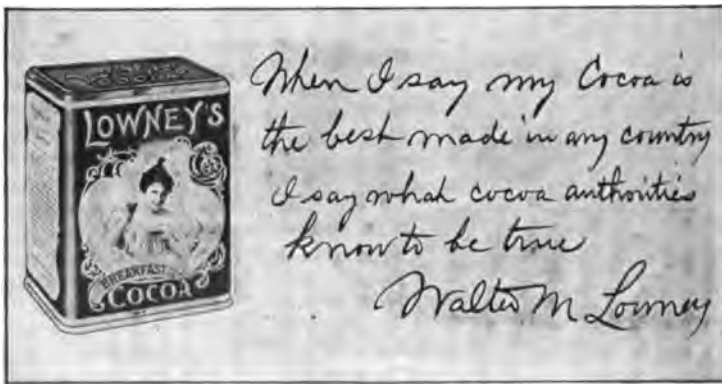 LOWNEY'S
BREAKFAST
COCOA
When I say my Cocoa is
the best made in any country
I say what cocoa authorities
know to be true
Walter M Lowney